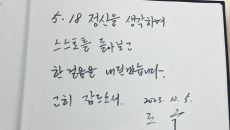 5·18 정신을 생각하며
스스로를 돌아보고
한 걸음을 내딛겠습니다.
고히 잠드소서.
2023. 12. 5.